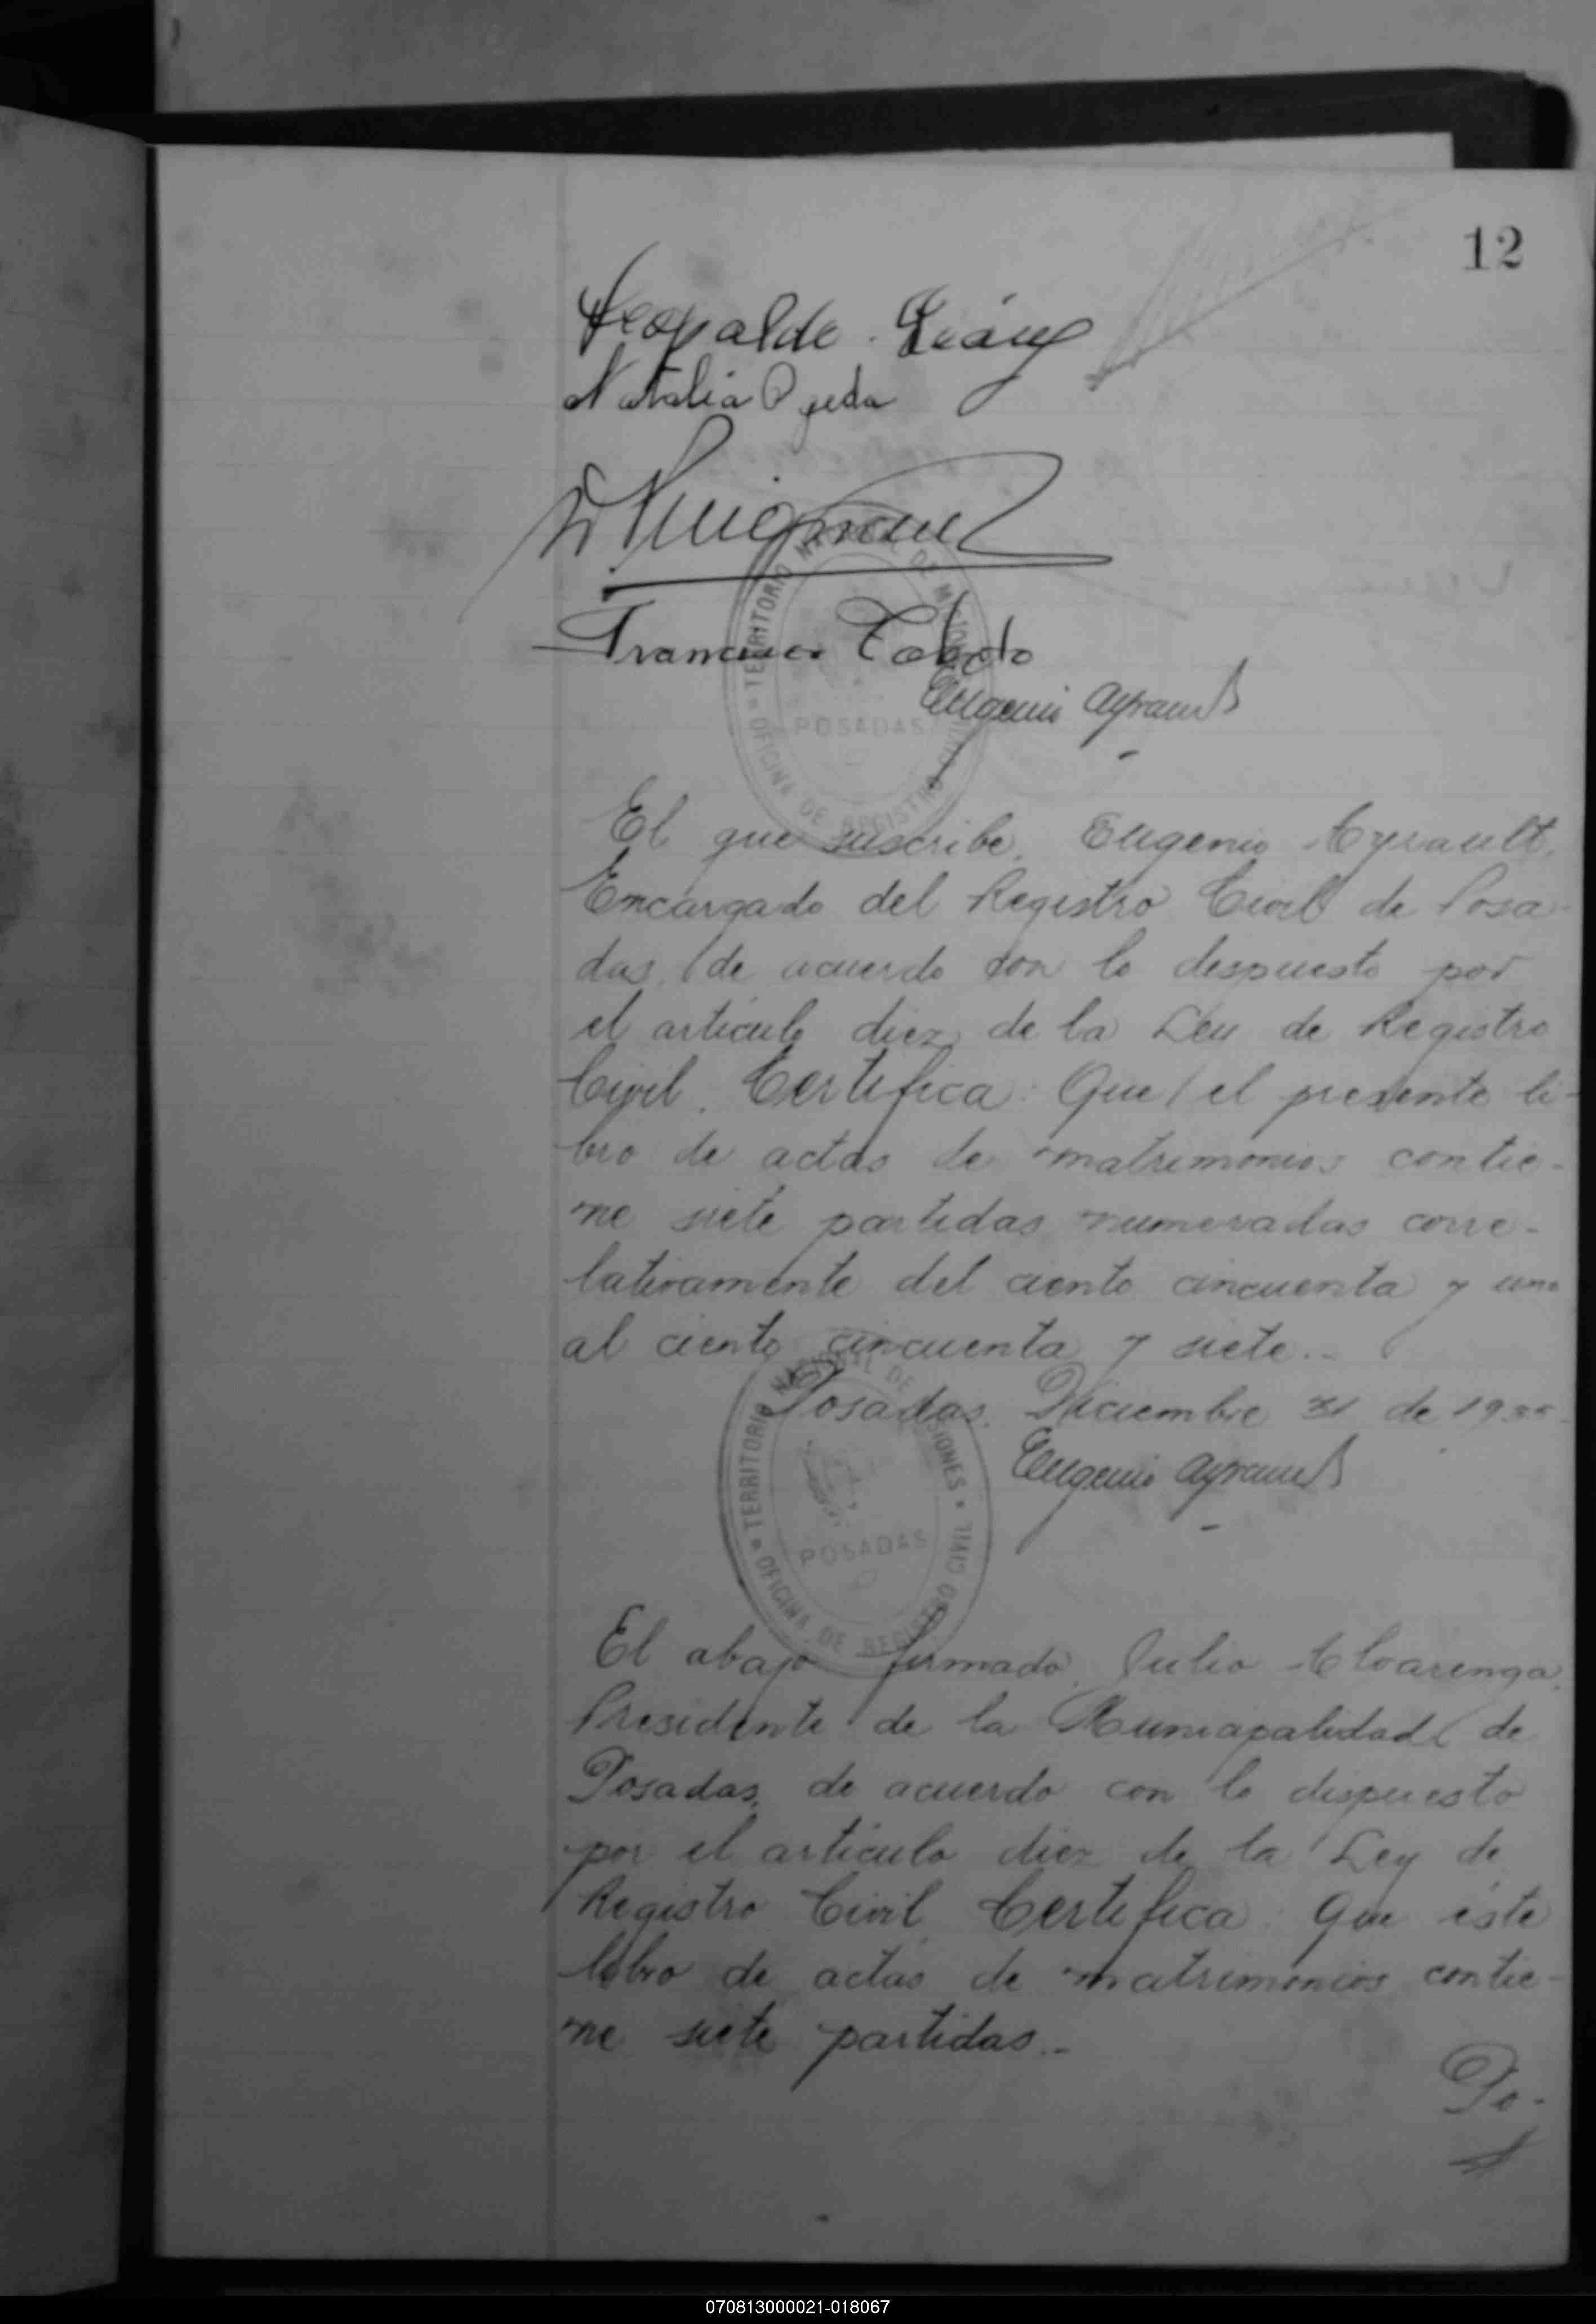 12
Natalia Ojeda
Francisco Toledo
Eugenio Ayrault
TERRITORIO NACIONAL DE MISIONES
OFICINA DE REGISTRO CIVIL
POSADAS
El que suscribe, Eugenio Ayrault,
Encargado del Registro Civil de Posa-
das, de acuerdo con lo despuesto por
el artículo diez de la Ley de Registro
Civil, Certifica: Que el presente li-
bro de actas de matrimonios contie-
ne siete partidas numeradas corre-
lativamente del ciento cincuenta y uno
al ciento cincuenta y siete.-
Posadas, Diciembre 31 de
Eugenio Ayrault
TERRITORIO NACIONAL DE MISIONES
OFICINA DE REGISTRO CIVIL
POSADAS
El abajo firmado, Julio Alvarenga,
Presidente de la Municipalidad de
Posadas, de acuerdo con lo dispuesto
por el artículo diez de la Ley de
Registro Civil, Certifica: Que éste
libro de actas de matrimonios contie-
ne siete partidas.-
Po-
070813000021-018067